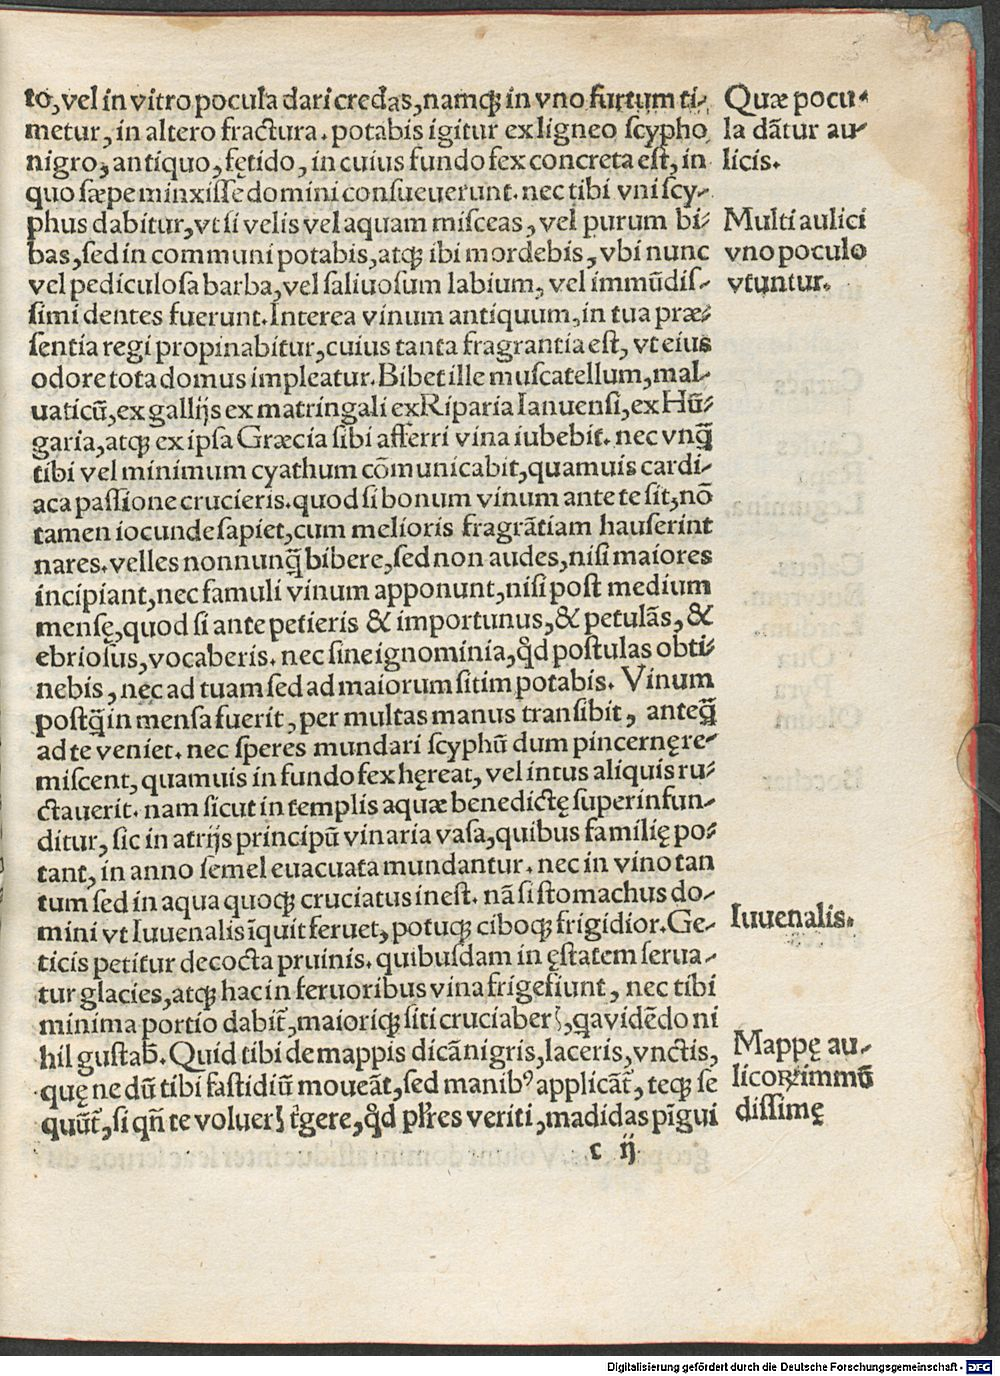 to, vel in vitro pocula dari credas, namq̃ in vno furtum ti-
metur, in altero fractura. potabis igitur ex ligneo scypho
nigro, antiquo, fętido, in cuius fundo fex concreta est, in
quo sæpe minxisse domini consueuerunt. nec tibi vni scy-
phus dabitur, vt si velis vel aquam misceas, vel purum bi-
bas, sed in communi potabis, atq̃ ibi mordebis, vbi nunc
vel pediculosa barba, vel saliuosum labium, vel immūdis-
simi dentes fuerunt. Interea vinum antiquum, in tua præ-
sentia regi propinabitur, cuius tanta fragrantia est, vt eius
odore tota domus impleatur. Bibet ille muscatellum, mal-
uaticū, ex gallijs ex matringali ex Riparia Ianuensi, ex Hū-
garia, atq̃ ex ipsa Græcia sibi afferri vina iubebit. nec vnq̃
tibi vel minimum cyathum cōmunicabit, quamuis cardi-
aca passione crucieris. quod si bonum vinum ante te sit, nō
tamen iocunde sapiet, cum melioris fragrātiam hauserint
nares. velles nonnunq̃ bibere, sed non audes, nisi maiores
incipiant, nec famuli vinum apponunt, nisi post medium
mensę, quod si ante petieris & importunus, & petulās, &
ebriosus, vocaberis. nec sine ignominia, qd̃ postulas obti-
nebis, nec ad tuam sed ad maiorum sitim potabis. Vinum
postq̃ in mensa fuerit, per multas manus transibit, anteq̃
ad te veniet. nec speres mundari scyphū dum pincernę re-
miscent, quamuis in fundo fex hęreat, vel intus aliquis ru-
ctauerit. nam sicut in templis aquæ benedictę superinfun-
ditur, sic in atrijs principū vinaria vasa, quibus familię po-
tant, in anno semel euacuata mundantur. nec in vino tan
tum sed in aqua quoq̃ cruciatus inest. nā si stomachus do-
mini vt Iuuenalis īquit feruet, potuq̃ ciboq̃ frigidior. Ge-
ticis petitur decocta pruinis. quibusdam in ęstatem serua-
tur glacies, atq̃ hac in feruoribus vina frigefiunt, nec tibi
minima portio dabit̃, maioriq̃ siti cruciaberꝭ, q̃ avidēdo ni
hil gustab̃. Quid tibi de mappis dicā nigris, laceris, vnctis,
quę ne dū tibi fastidiū moueāt, sed manibꝰ applicāt̃, teq̃ se
quūt̃, si qñ te voluerꝭ t̃gere, qd̃ pl̃res veriti, madidas pīgui
c ij
Quæ pocu-
la dātur au-
licis.
Multi aulici
vno poculo
vtuntur.
Iuuenalis.
Mappę au-
licoꝝ immū
dissimę
Digitalisierung gefördert durch die Deutsche Forschungsgemeinschaft - DFG